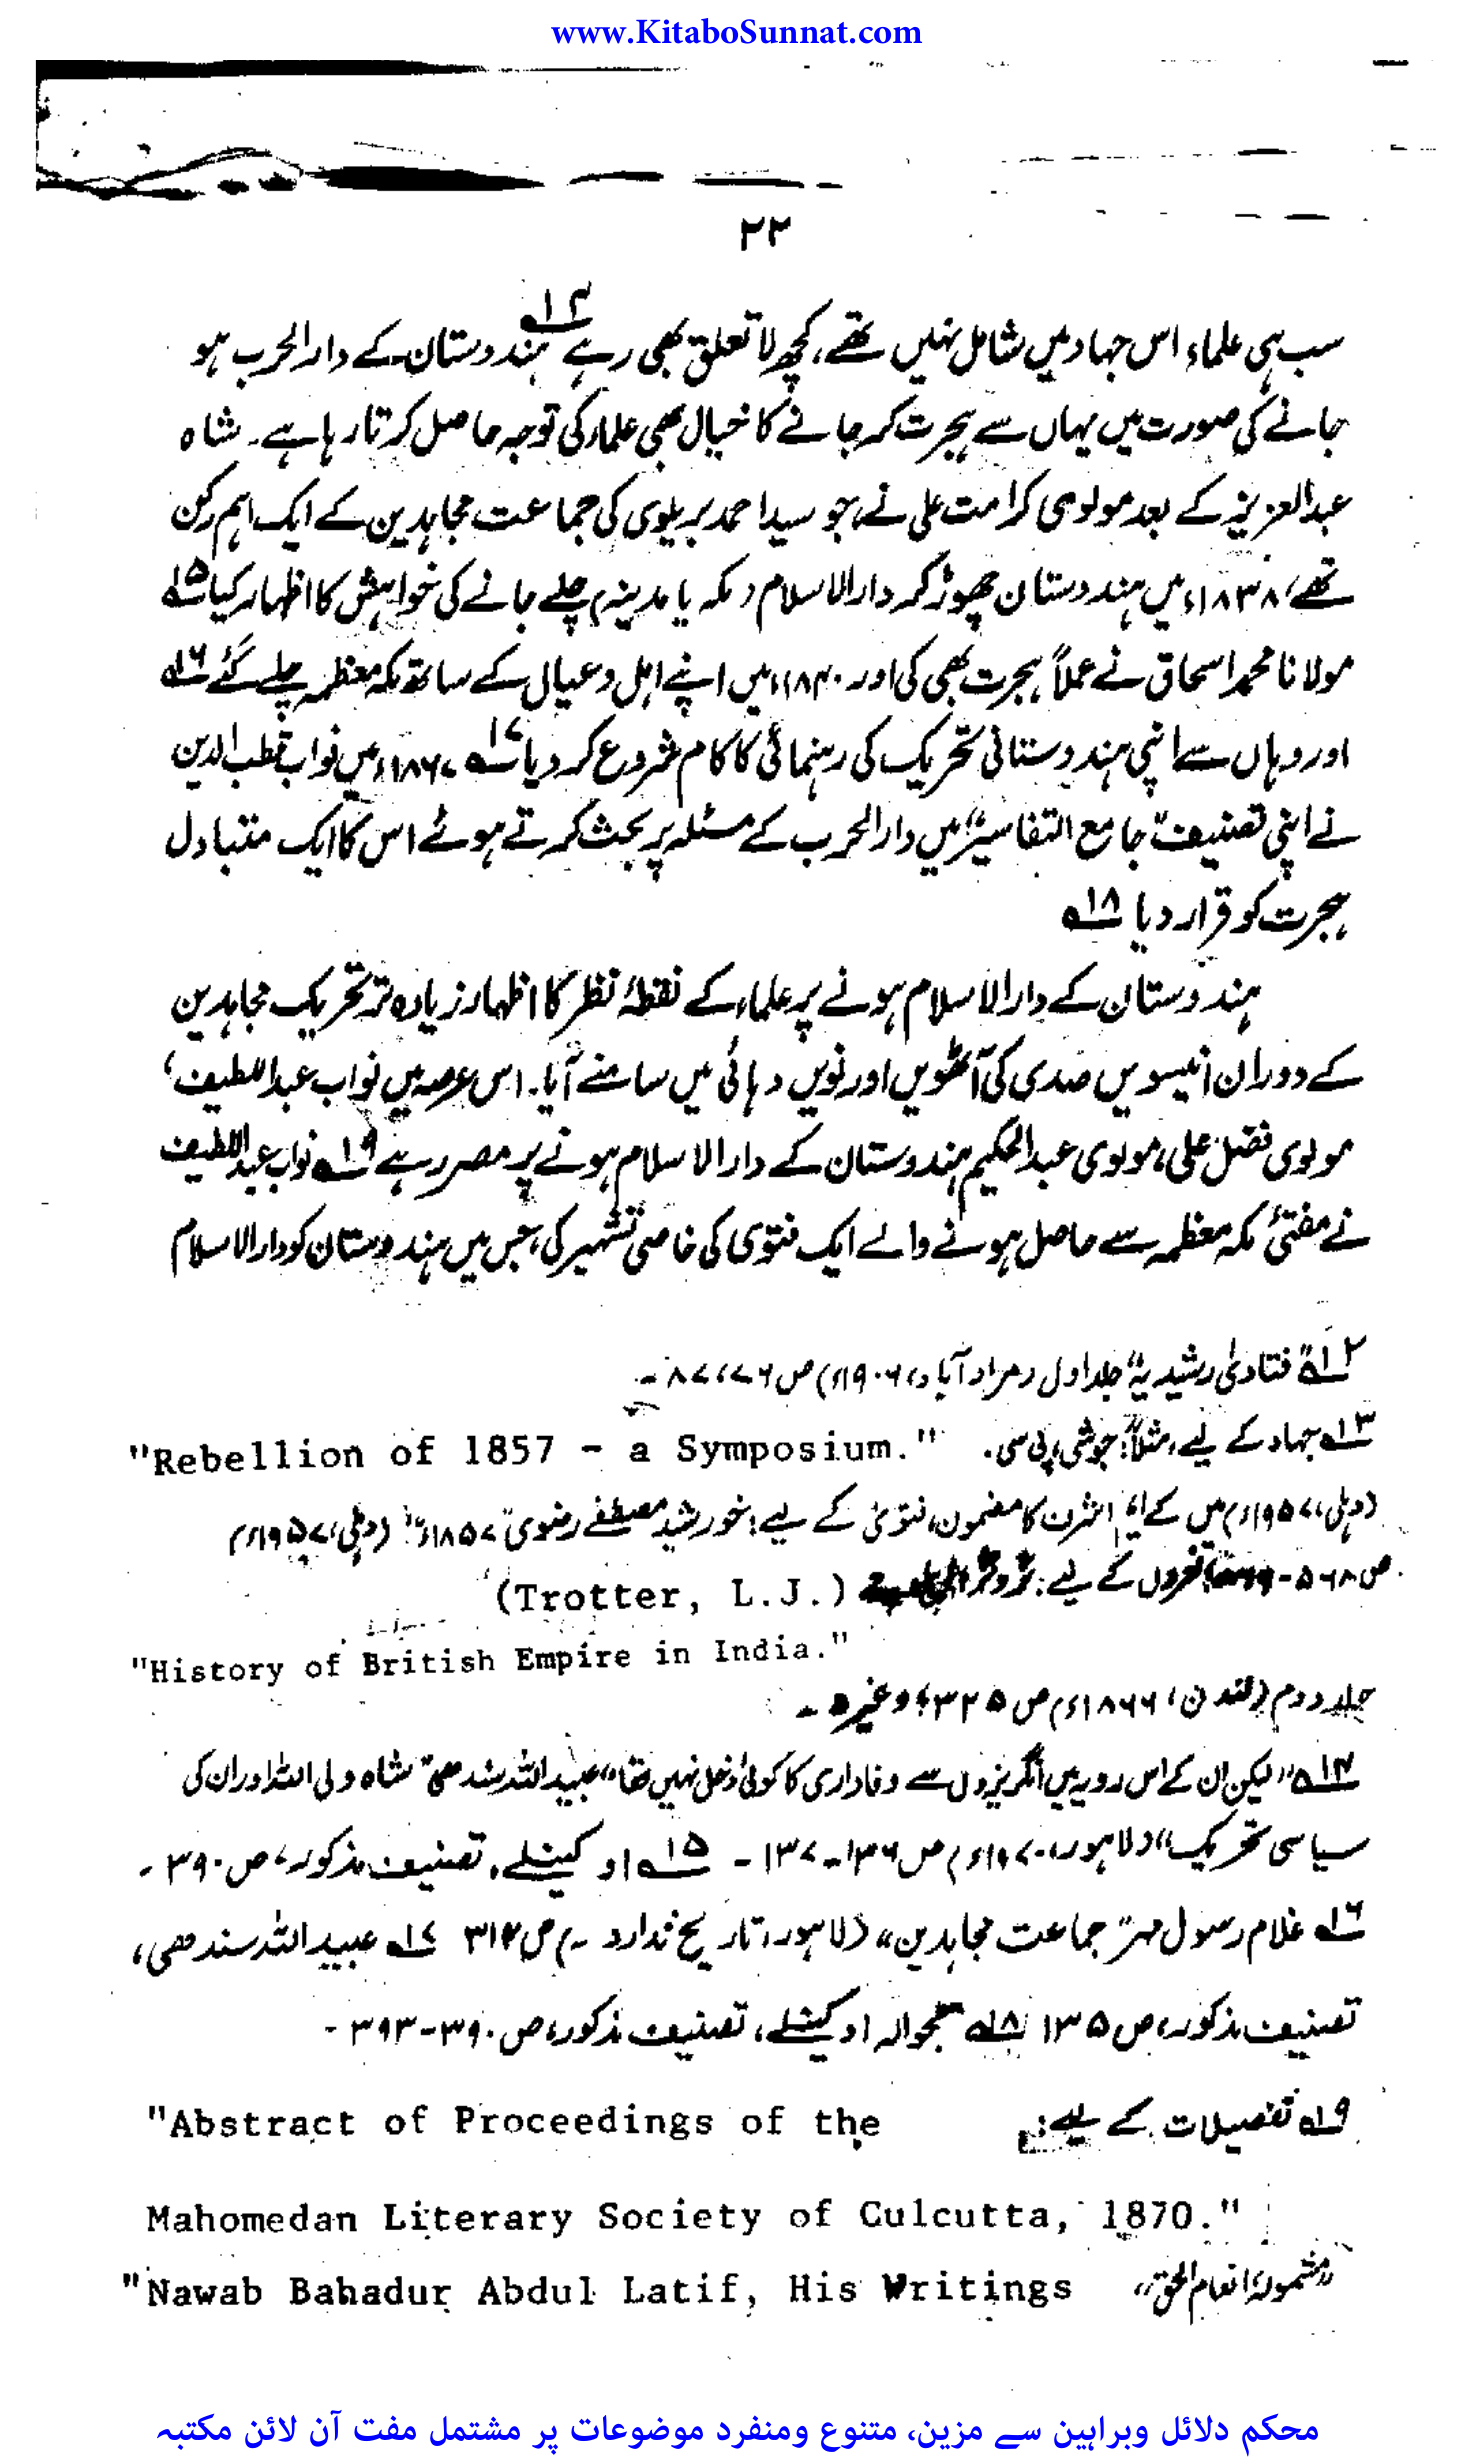 www.KitaboSunnat.com
۲۲
سب ہی علماء اس جہاد میں شامل نہیں تھے، کچھ لا تعلق بھی رہے ۱۴؎ ہندوستان کے دارالحرب ہو
جانے کی صورت میں یہاں سے ہجرت کر جانے کا خیال بھی علماء کی توجہ حاصل کرتا رہا ہے۔ شاہ
عبدالعزیز کے بعد مولوی کرامت علی نے، جو سید احمد بریلوی کی جماعت مجاہدین کے ایک اہم رکن
تھے، ۱۸۳۸ء میں ہندوستان چھوڑ کر دارالاسلام (مکہ یا مدینہ) چلے جانے کی خواہش کا اظہار کیا ۱۵؎
مولانا محمد اسحاق نے عملاً ہجرت بھی کی اور ۱۸۴۰ء میں اپنے اہل و عیال کے ساتھ مکہ معظمہ چلے گئے ۱۶؎
اور وہاں سے اپنی ہندوستانی تحریک کی رہنمائی کا کام شروع کر دیا ۱۷؎ ۱۸۶۷ء میں نواب قطب الدین
نے اپنی تصنیف "جامع التفاسیر" میں دارالحرب کے مسئلہ پر بحث کرتے ہوئے اس کا ایک متبادل
ہجرت کو قرار دیا ۱۸؎
ہندوستان کے دارالاسلام ہونے پر علماء کے نقطۂ نظر کا اظہار زیادہ تر تحریک مجاہدین
کے دوران انیسویں صدی کی آٹھویں اور نویں دہائی میں سامنے آیا۔ اس عرصہ میں نواب عبداللطیف،
مولوی فضل علی، مولوی عبدالحکیم ہندوستان کے دارالاسلام ہونے پر مصر رہے ۱۹؎ نواب عبداللطیف
نے مفتیٔ مکہ معظمہ سے حاصل ہونے والے ایک فتویٰ کی خاصی تشہیر کی، جس میں ہندوستان کو دارالاسلام
۱۲؎ "فتاویٰ رشیدیہ" جلد اول (مراد آباد، ۱۹۰۶ء) ص ۷۶، ۸۷۔
۱۳؎ جہاد کے لیے، مثلاً: جوشی، پی سی۔ "Rebellion of 1857 - a Symposium."
(دہلی، ۱۹۵۷ء) میں کے ایم اشرف کا مضمون، فتویٰ کے لیے: خورشید مصطفےٰ رضوی "۱۸۵۷ء" (دہلی، ۱۹۵۷ء)
ص ۵۶۸- نعروں کے لیے: ٹروٹر (Trotter, L.J.)
"History of British Empire in India."
جلد دوم (لندن، ۱۸۶۶ء) ص ۳۲۵؛ وغیرہ۔
۱۴؎ "لیکن ان کے اس رویہ میں انگریزوں سے وفاداری کا کوئی دخل نہیں تھا" عبیداللہ سندھی "شاہ ولی اللہ اور ان کی
سیاسی تحریک" (لاہور، ۱۹۷۰ء) ص ۱۳۶-۱۳۷۔ ۱۵؎ او کینلے، تصنیف مذکور، ص ۳۹۰۔
۱۶؎ غلام رسول مہر "جماعت مجاہدین" (لاہور، تاریخ ندارد۔) ص ۳۱۴ ۱۷؎ عبیداللہ سندھی،
تصنیف مذکور، ص ۱۳۵ ۱۸؎ بحوالہ او کینلے، تصنیف مذکور، ص ۳۹۰-۳۹۳۔
۱۹؎ تفصیلات کے لیے: "Abstract of Proceedings of the
Mahomedan Literary Society of Culcutta, 1870."
"مشمولۂ انعام الحق" "Nawab Bahadur Abdul Latif, His Writings
محکم دلائل وبراہین سے مزین، متنوع ومنفرد موضوعات پر مشتمل مفت آن لائن مکتبہ